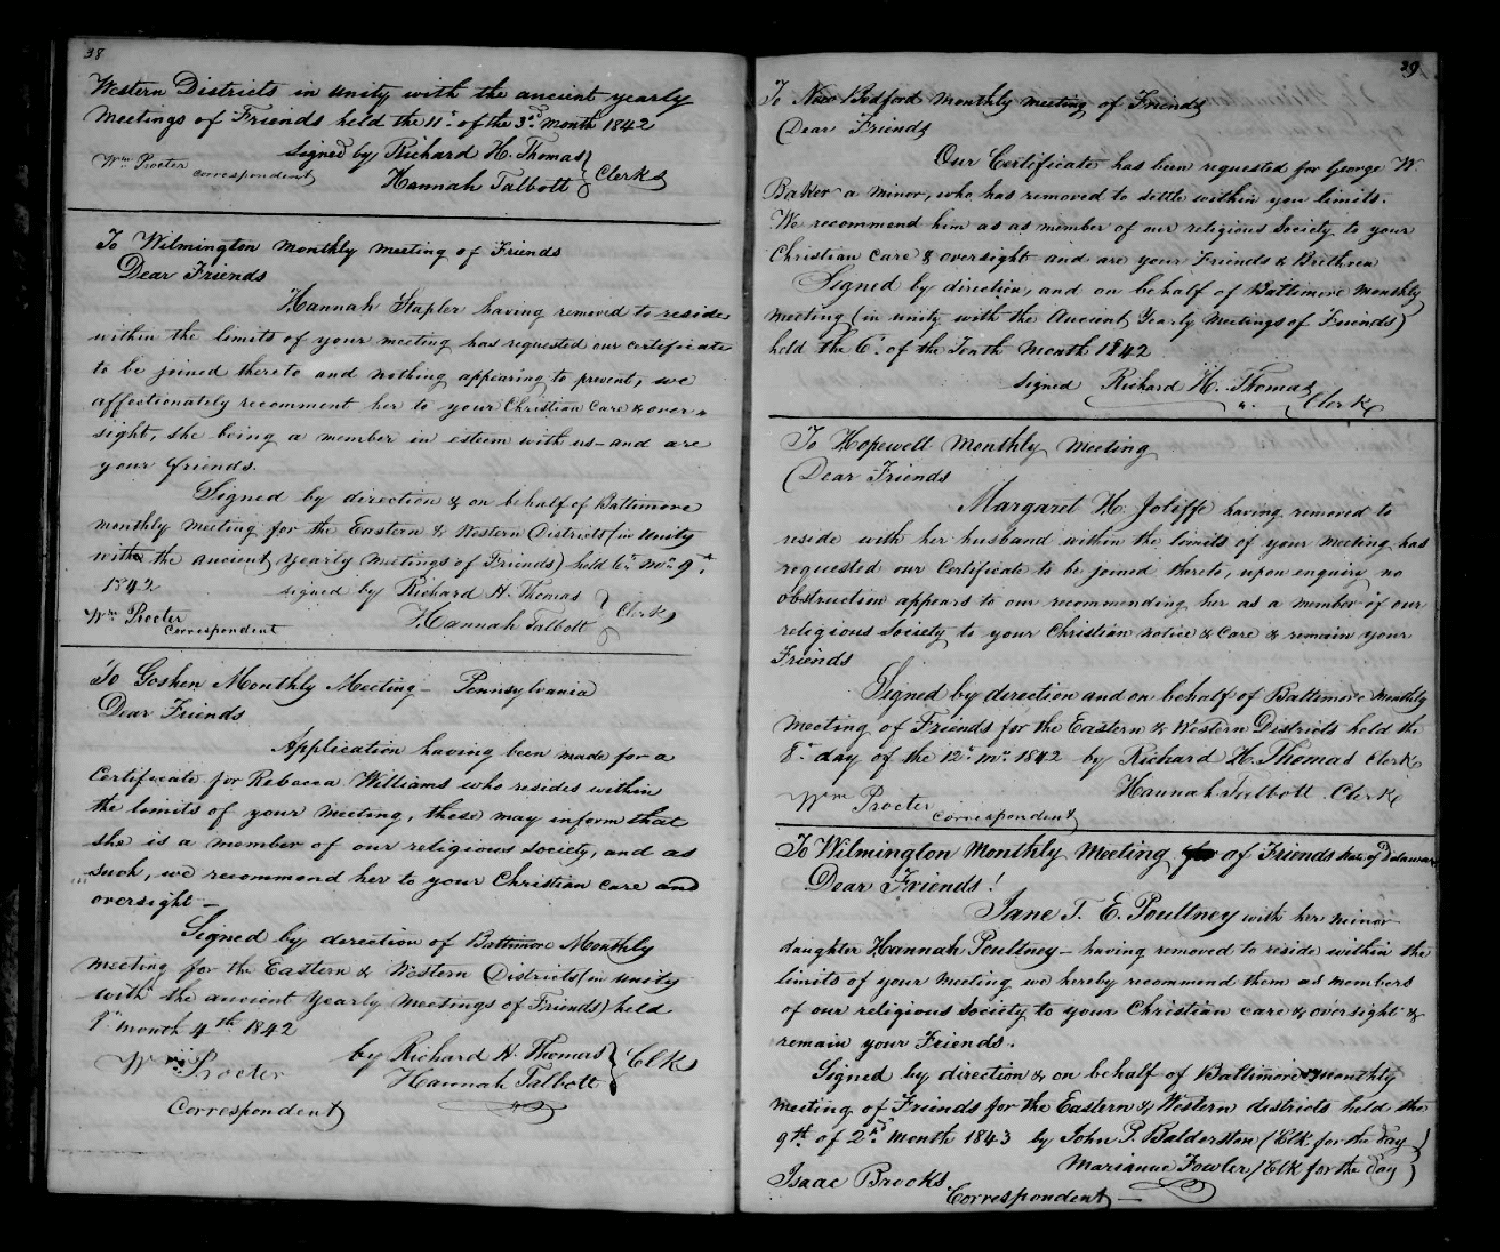 38
Western Districts in unity with the ancient yearly
Meetings of Friends held the 11th of the 3rd month 1842
signed by Richard H. Thomas
Wm Procter correspondent
Hannah Talbott } Clerks
To Wilmington Monthly Meeting of Friends
Dear Friends
Hannah Stapler having removed to reside
within the limits of your meeting has requested our certificate
to be joined thereto and nothing appearing to prevent, we
affectionately recomment her to your Christian Care & over-
sight, she being a member in esteem with us - and are
your friends.
Signed by direction & on behalf of Baltimore
monthly meeting for the Eastern & Western Districts (in Unity
with the ancient Yearly Meetings of Friends) held 6th mo. 9th
1842 signed by Richard H. Thomas
Wm Procter Hannah Talbott } Clerks
correspondent
To Goshen Monthly Meeting - Pennsylvania
Dear Friends
Application having been made for a
Certificate for Rebecca Williams who resides within
the limits of your Meeting, these may inform that
she is a member of our religious society, and as
such, we recommend her to your Christian care and
oversight -
Signed by direction of Baltimore Monthly
Meeting for the Eastern & Western Districts (in unity
with the ancient Yearly Meetings of Friends) held
month 4th 1842
Wm Procter by Richard H. Thomas
Hannah Talbott } Clks
Correspondent
39
To New Bedford Monthly Meeting of Friends
Dear Friends
Our Certificate has been requested for George W.
Baker a minor, who has removed to settle within your limits.
We recommend him as as member of our religious Society to your
Christian care & oversight and are your Friends & Brethren
Signed by direction, and on behalf of Baltimore Monthly
Meeting (in unity with the Ancient Yearly Meetings of Friends)
held the 6th of the Tenth Month 1842
signed Richard H. Thomas
Clerk
To Hopewell Monthly Meeting
Dear Friends
Margaret H. Joliffe having removed to
reside with her husband within the limits of your Meeting has
requested our Certificate to be joined thereto, upon enquiry no
obstruction appears to our recommending her as a member of our
religious Society to your Christian notice & care & remain your
Friends
Signed by direction and on behalf of Baltimore Monthly
Meeting of Friends for the Eastern & Western Districts held the
8th day of the 12th mo. 1842 by Richard H. Thomas Clerk
Hannah Talbott Clerk
Wm Procter
correspondent
To Wilmington Monthly Meeting of Friends State of Delaware
Dear Friends!
Jane T. E. Poultney with her minor
daughter Hannah Poultney - having removed to reside within the
limits of your Meeting we hereby recommend them as members
of our religious Society to your Christian care & oversight &
remain your Friends.
Signed by direction & on behalf of Baltimore Monthly
Meeting of Friends for the Eastern & Western districts held the
9th of 2nd Month 1843 by John P. Balderston / Clk for the day
Marianne Fowler / Clk for the day
Isaac Brooks
Correspondent -